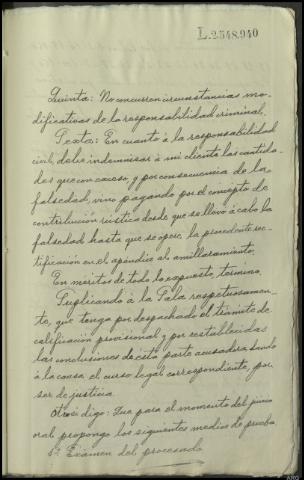 L.2.548.940
Quinta: No concurren circunstancias mo-
dificativas de la responsabilidad criminal.
Sexta: En cuanto á la responsabilidad
civil, debe indemnizar á mi cliente las cantida-
des que con exceso, y por consecuencia de la
falsedad, vino pagando por el concepto de
contribución rústica desde que se llevó á cabo la
falsedad hasta que se operó la procedente rec-
tificación en el apéndice al amillaramiento.
En méritos de todo lo expuesto, termino
Suplicando á la Sala respetuosamen-
te, que tenga por despachado el trámite de
calificación provisional y por establecidas
las conclusiones de esta parte acusadora, dando
á la causa el curso legal correspondiente, por
ser de justicia.
Otrosí digo: Que para el momento del juicio
oral propongo los siguientes medios de prueba
1º Examen del procesado